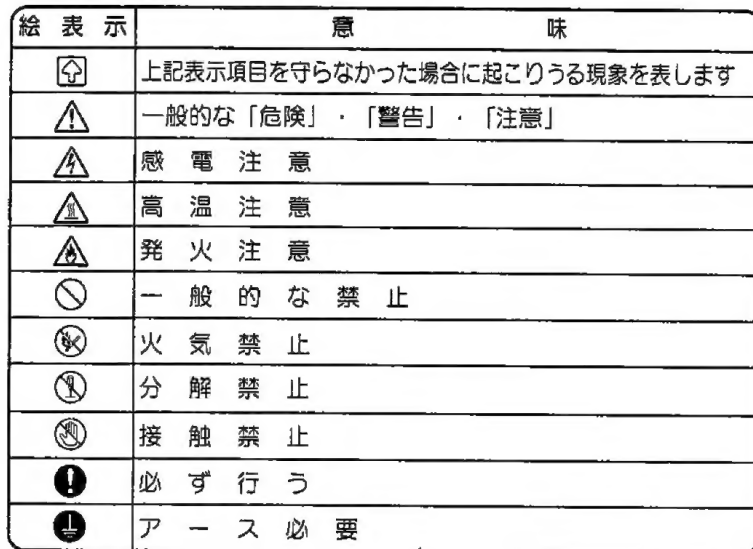 絵表示 意味
上記表示項目を守らなかった場合に起こりうる現象を表します
一般的な「危険」・「警告」・「注意」
感電注意
高温注意
発火注意
一般的な禁止
火気禁止
分解禁止
接触禁止
必ず行う
アース必要